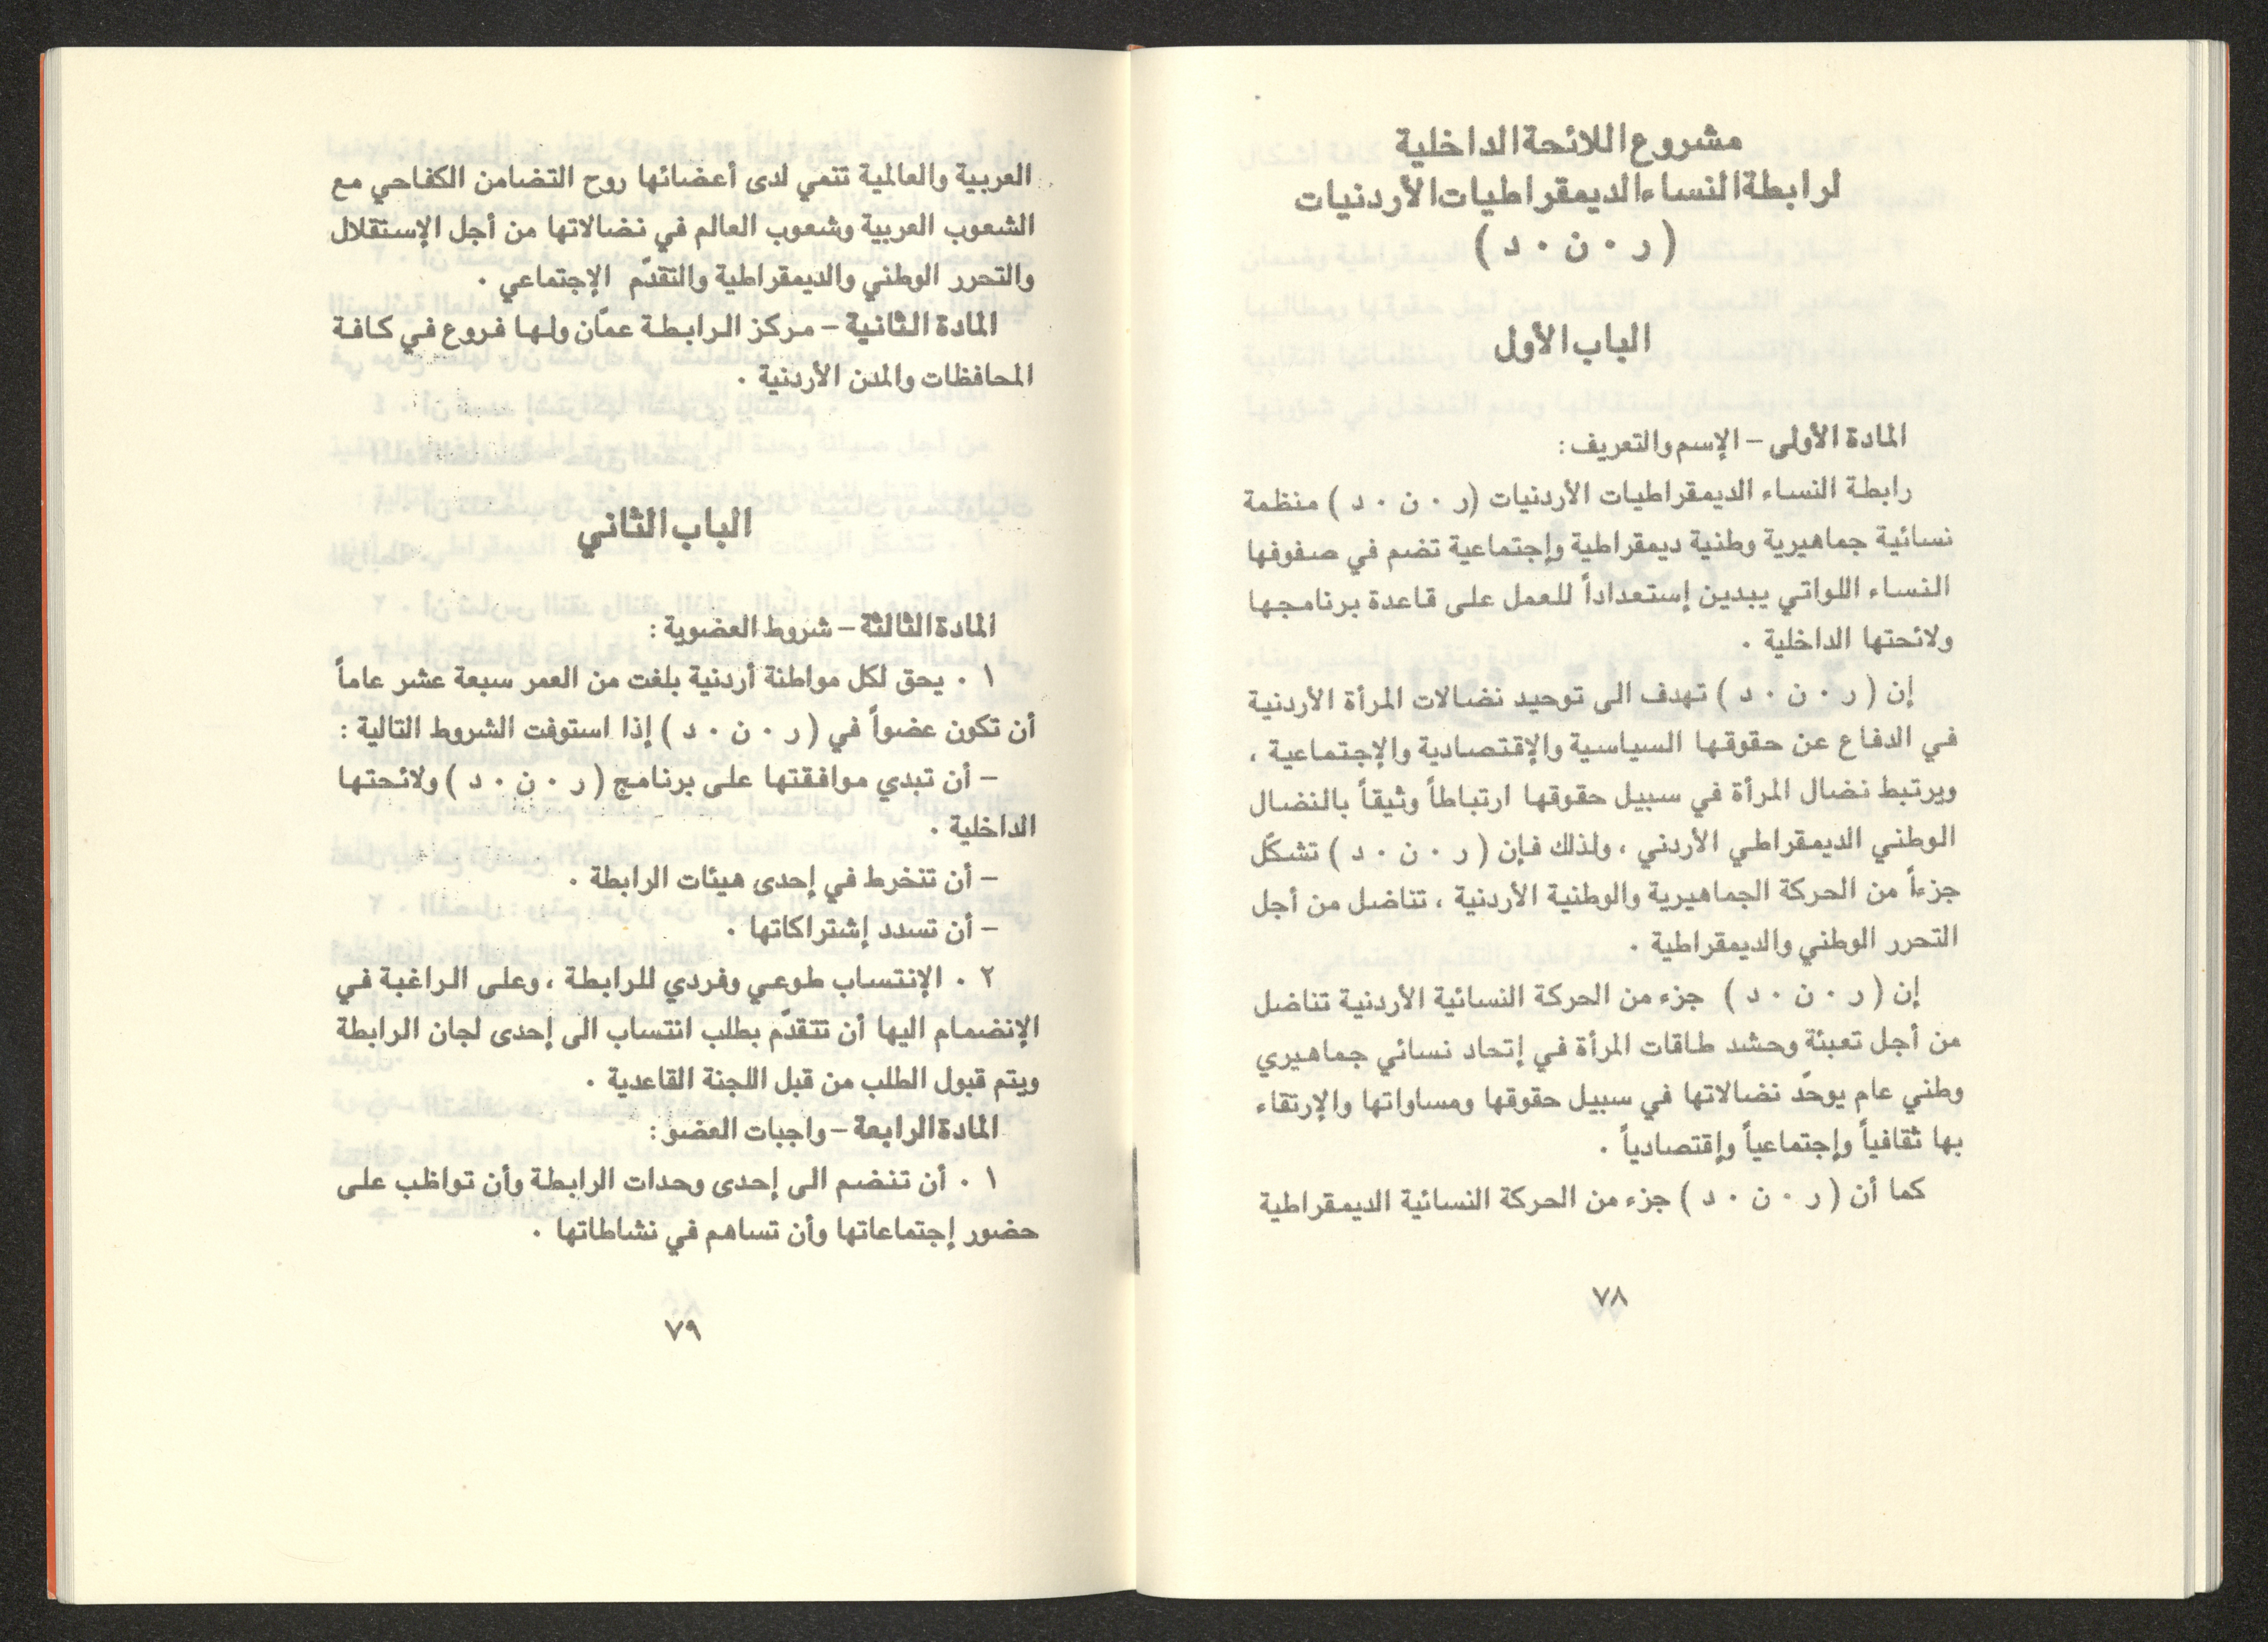 مشروع اللائحة الداخلية
لرابطة النساء الديمقراطيات الأردنيات
( ر ٠ ن ٠ د )
الباب الأول
المادة الأولى – الإسم والتعريف :
رابطة النساء الديمقراطيات الأردنيات (ر ٠ ن ٠ د ) منظمة
نسائية جماهيرية وطنية ديمقراطية وإجتماعية تضم في صفوفها
النساء اللواتي يبدين إستعداداً للعمل على قاعدة برنامجها
ولائحتها الداخلية ٠
إن ( ر ٠ ن ٠ د ) تهدف الى توحيد نضالات المرأة الأردنية
في الدفاع عن حقوقها السياسية والإقتصادية والإجتماعية ،
ويرتبط نضال المرأة في سبيل حقوقها ارتباطاً وثيقاً بالنضال
الوطني الديمقراطي الأردني ، ولذلك فإن ( ر ٠ ن ٠ د ) تشكّل
جزءاً من الحركة الجماهيرية والوطنية الأردنية ، تناضل من أجل
التحرر الوطني والديمقراطية ٠
إن ( ر ٠ ن ٠ د ) جزء من الحركة النسائية الأردنية تناضل
من أجل تعبئة وحشد طاقات المرأة في إتحاد نسائي جماهيري
وطني عام يوحّد نضالاتها في سبيل حقوقها ومساواتها والإرتقاء
بها ثقافياً وإجتماعياً وإقتصادياً ٠
كما أن ( ر ٠ ن ٠ د ) جزء من الحركة النسائية الديمقراطية
٧٨
العربية والعالمية تنمي لدى أعضائها روح التضامن الكفاحي مع
الشعوب العربية وشعوب العالم في نضالاتها من أجل الإستقلال
والتحرر الوطني والديمقراطية والتقدّم الإجتماعي ٠
المادة الثانية – مركز الرابطة عمّان ولها فروع في كافة
المحافظات والمدن الأردنية ٠
الباب الثاني
المادة الثالثة – شروط العضوية :
١ ٠ يحق لكل مواطنة أردنية بلغت من العمر سبعة عشر عاماً
أن تكون عضواً في ( ر ٠ ن ٠ د ) إذا استوفت الشروط التالية :
– أن تبدي موافقتها على برنامج ( ر ٠ ن ٠ د ) ولائحتها
الداخلية ٠
– أن تنخرط في إحدى هيئات الرابطة ٠
– أن تسدد إشتراكاتها ٠
٢ ٠ الإنتساب طوعي وفردي للرابطة ، وعلى الراغبة في
الإنضمام اليها أن تتقدّم بطلب انتساب الى إحدى لجان الرابطة
ويتم قبول الطلب من قبل اللجنة القاعدية ٠
المادة الرابعة – واجبات العضو :
١ ٠ أن تنضم الى إحدى وحدات الرابطة وأن تواظب على
حضور إجتماعاتها وأن تساهم في نشاطاتها ٠
٧٩